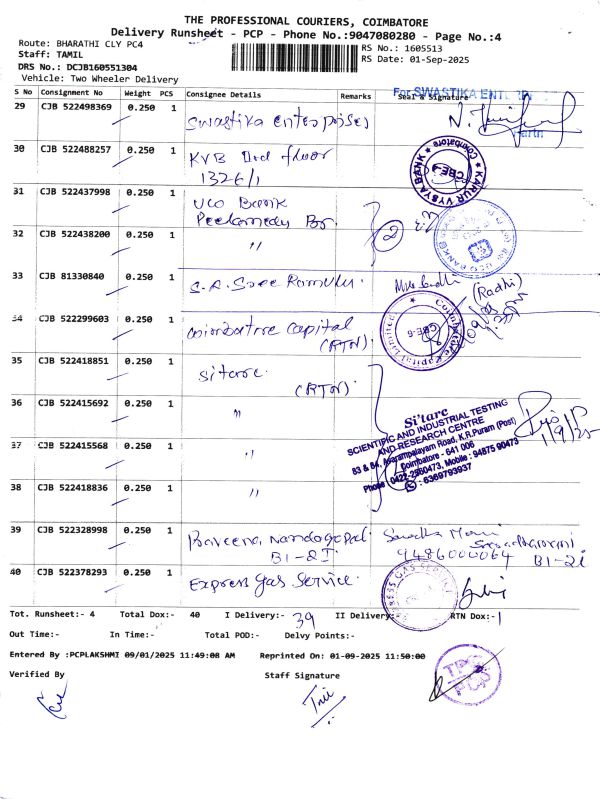 THE PROFESSIONAL COURIERS, COIMBATORE
Delivery Runsheet - PCP - Phone No.:9047080280 - Page No.:4
Route: BHARATHI CLY PC4
RS No.: 1605513
Staff: TAMIL
RS Date: 01-Sep-2025
DRS No.: DCJB160551304
Vehicle: Two Wheeler Delivery
S No Consignment No Weight PCS Consignee Details Remarks Seal & Signature
For SWASTIKA
29 CJB 522498369 0.250 1 Swastika enterprises
30 CJB 522488257 0.250 1 KVB IIrd floor
1326/1
KARUR VYSYA BANK
Coimbatore
31 CJB 522437998 0.250 1 UCO Bank
Peelamedu Br.
2
32 CJB 522438200 0.250 1 "
33 CJB 81330840 0.250 1 S.A. Sree Ramulu.
(Radhi)
34 CJB 522299603 0.250 1 Coimbatore Capital
(RTN).
Coimbatore Capital Limited
CBE-6
35 CJB 522418851 0.250 1 Sitarc.
(RTN).
36 CJB 522415692 0.250 1 "
Si'tarc
SCIENTIFIC AND INDUSTRIAL TESTING
AND RESEARCH CENTRE
83 & 84, Avarampalayam Road, K.R.Puram (Post)
Coimbatore - 641 006
Phone : 0422-2560473, Mobile : 94875 90473
: 6369793937
1/9/25
37 CJB 522415568 0.250 1 "
38 CJB 522418836 0.250 1 "
39 CJB 522328998 0.250 1 Raveena Nandagopal
B1-2I
9486000064 B1-2i
40 CJB 522378293 0.250 1 Express Gas Service.
Tot. Runsheet:- 4 Total Dox:- 40 I Delivery:- 39 II Delivery: RTN Dox:- 1
Out Time:- In Time:- Total POD:- Delvy Points:-
Entered By :PCPLAKSHMI 09/01/2025 11:49:08 AM Reprinted On: 01-09-2025 11:50:00
Verified By Staff Signature
TPC
PCP